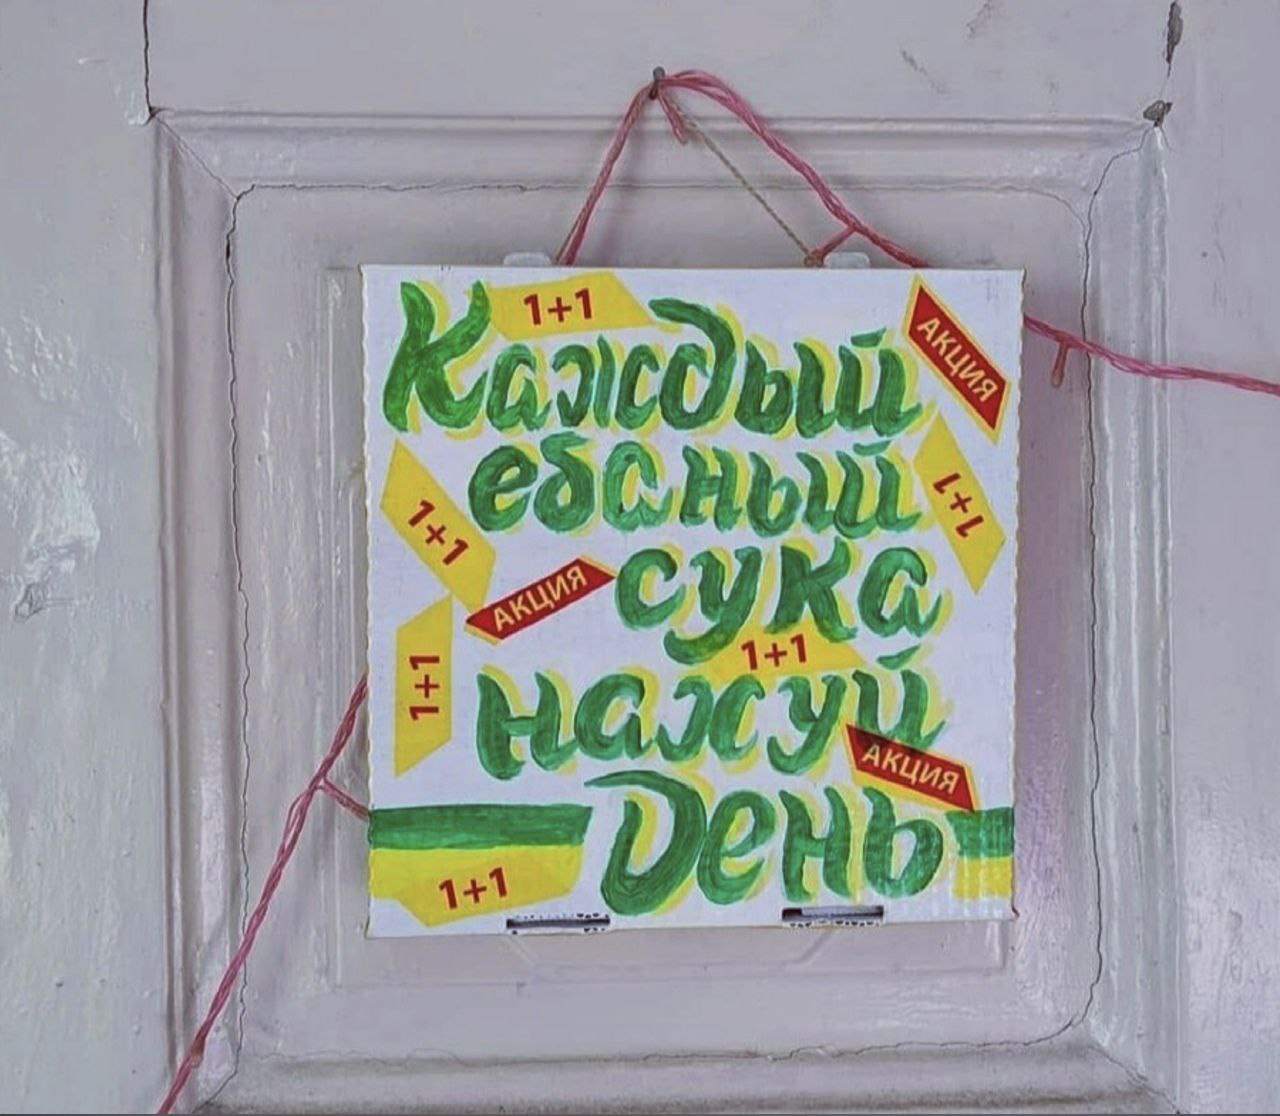 1+1
Каждый
АКЦИЯ
ебаный
1+1
1+1
сука
АКЦИЯ
1+1
1+1
нахуй
АКЦИЯ
День
1+1